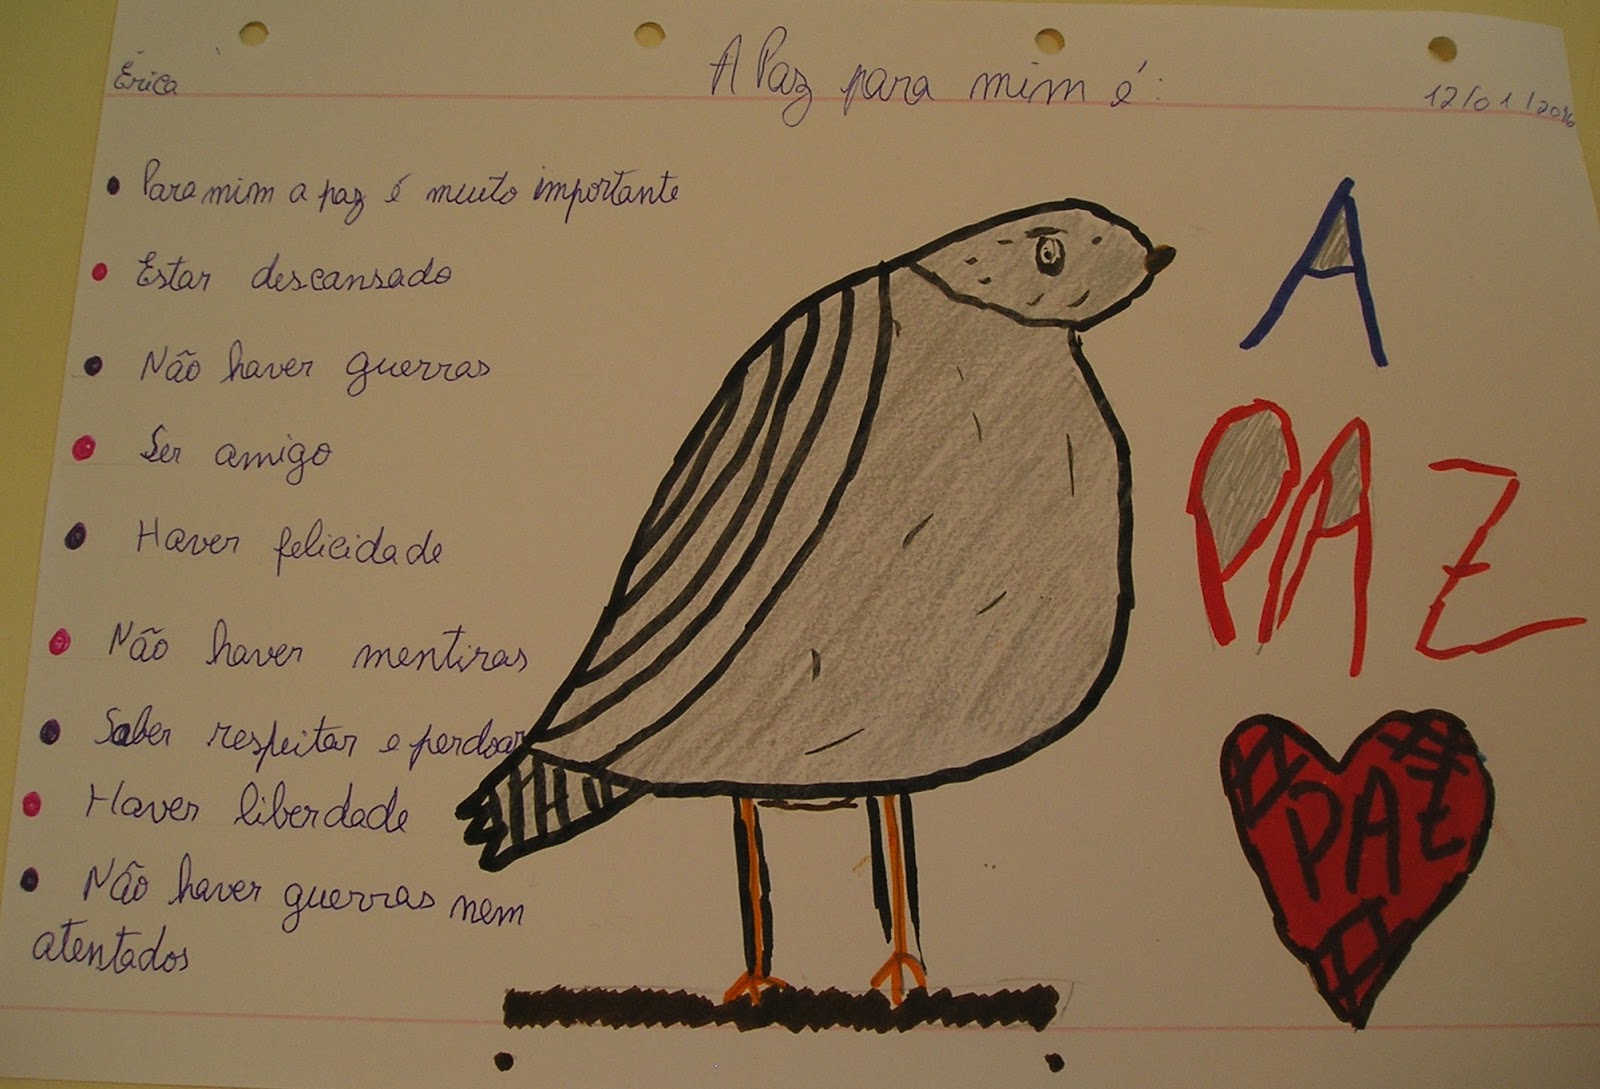 Érica
A Paz para mim é:
12/01/2016
Para mim a paz é muito importante
Estar descansado
Não haver guerras
Ser amigo
Haver felicidade
Não haver mentiras
Saber respeitar e perdoar
Haver liberdade
Não haver guerras nem
atentados
A
PAZ
PAZ